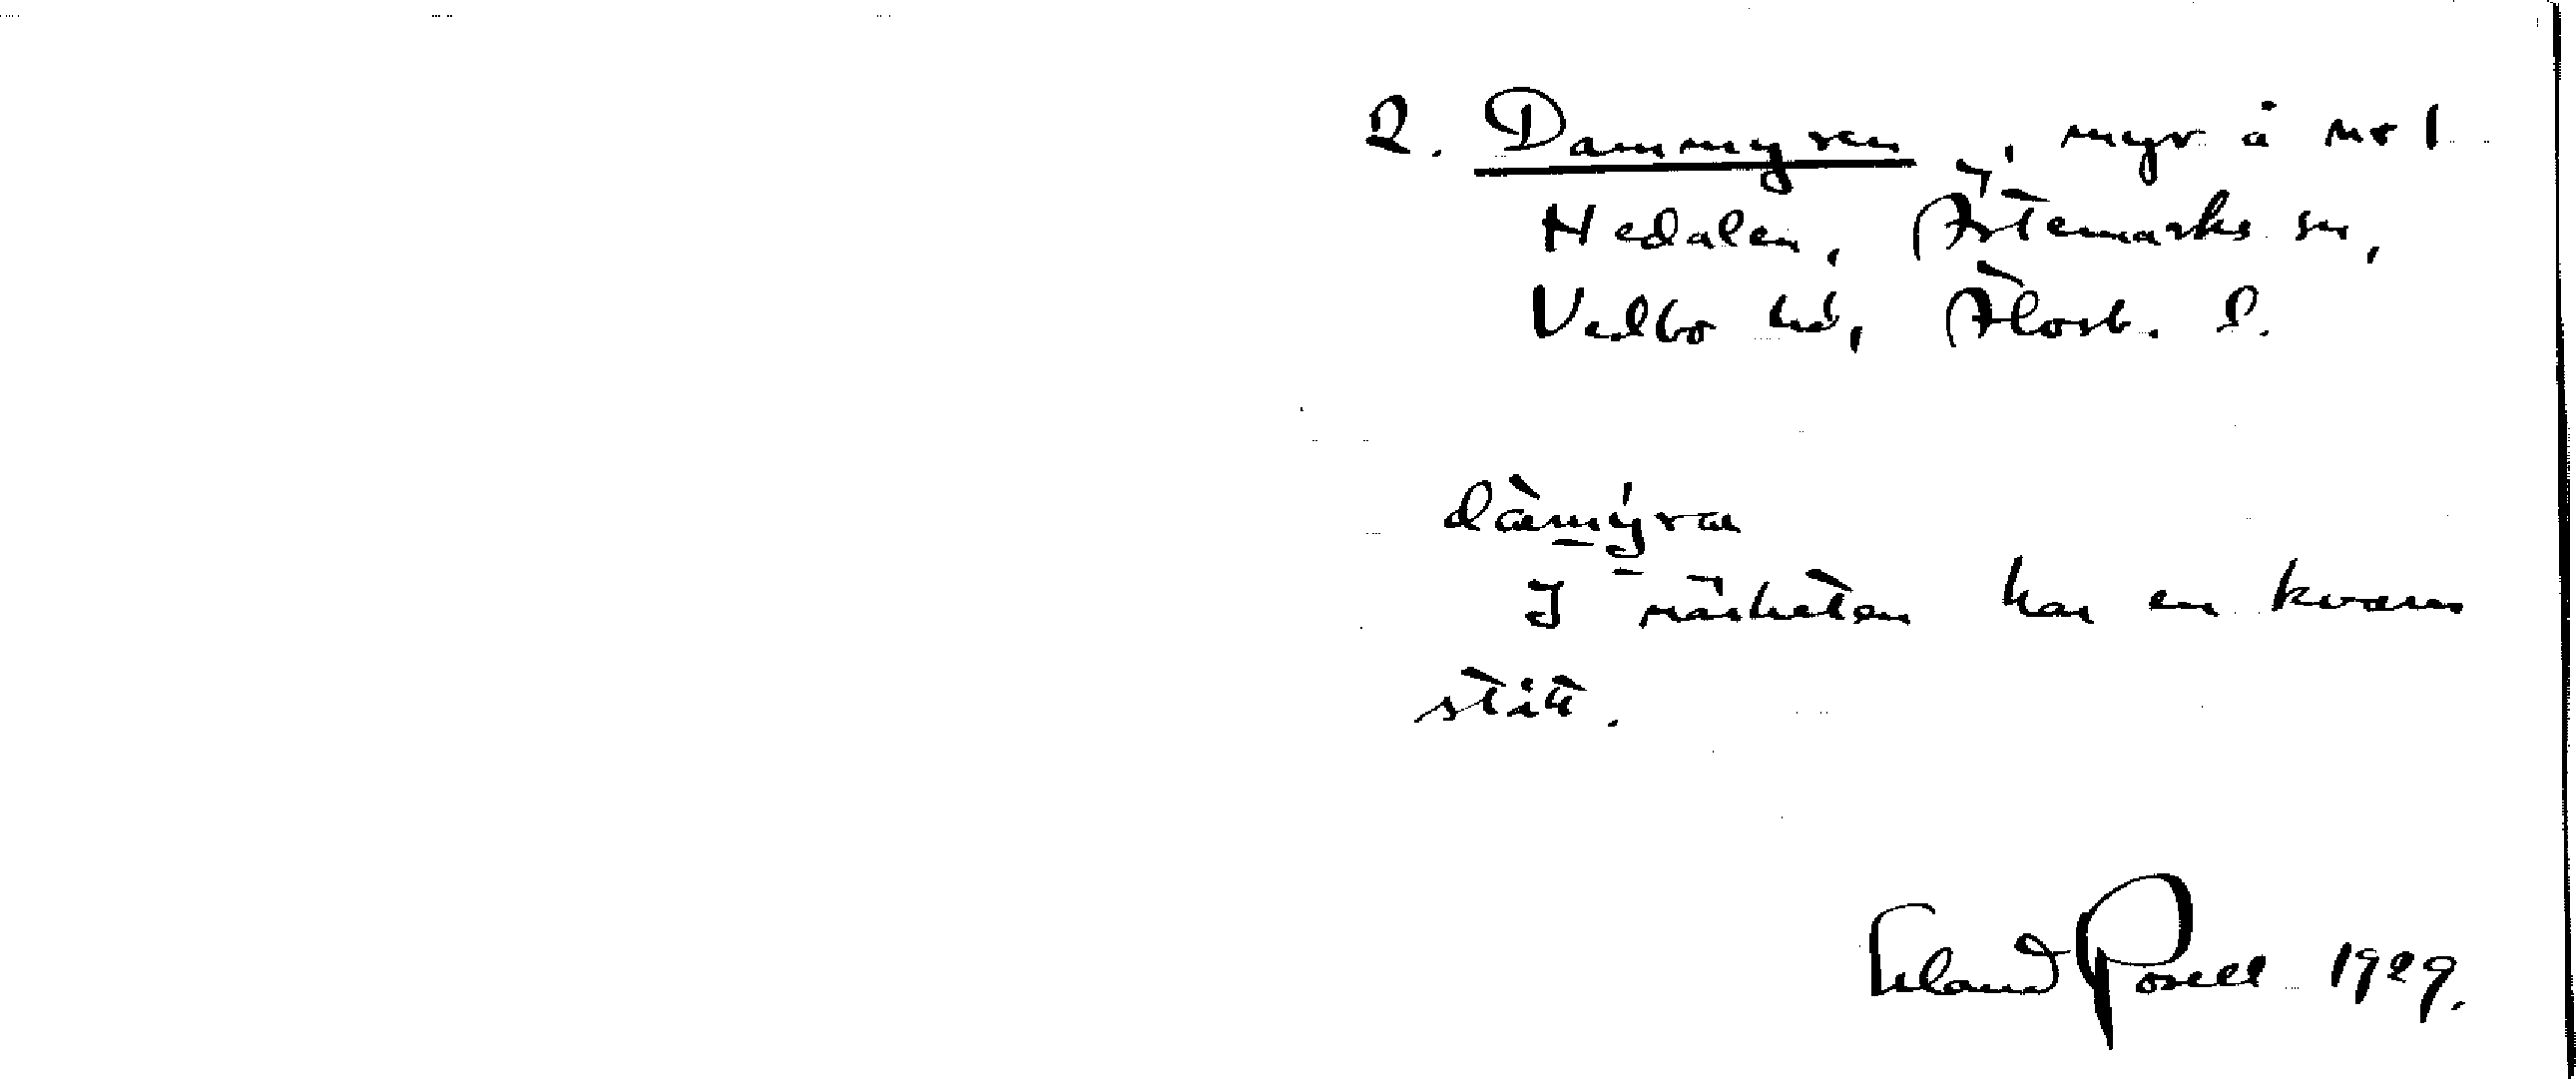 2. Dammyren, myr å nr 1
Hedalen, Ärtemarks sn,
Vedbo hd, Älvsb. l.
dàmýra
I närheten har en kvarn
stått.
Erland Rosell 1929.